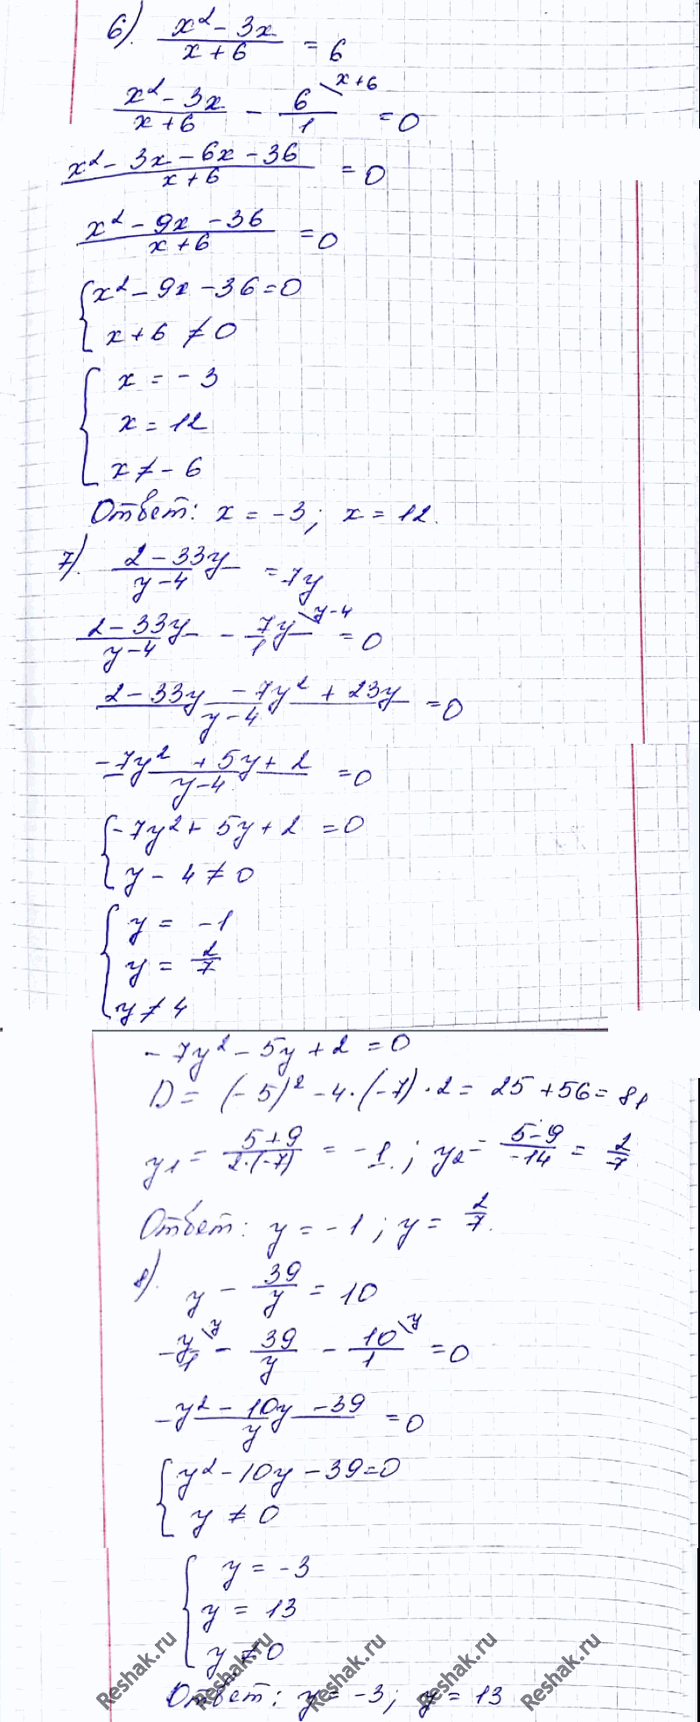 6). (x² - 3x)/(x + 6) = 6
(x² - 3x)/(x + 6) - 6/1 \x+6 = 0
(x² - 3x - 6x - 36)/(x + 6) = 0
(x² - 9x - 36)/(x + 6) = 0
{ x² - 9x - 36 = 0
x + 6 ≠ 0
{ x = -3
x = 12
x ≠ -6
Ответ: x = -3; x = 12.
7). (2 - 33y)/(y - 4) = 7y
(2 - 33y)/(y - 4) - 7y/1 \y-4 = 0
(2 - 33y - 7y² + 23y)/(y - 4) = 0
(-7y² + 5y + 2)/(y - 4) = 0
{ -7y² + 5y + 2 = 0
y - 4 ≠ 0
{ y = -1
y = 2/7
y ≠ 4
-7y² - 5y + 2 = 0
D = (-5)² - 4·(-7)·2 = 25 + 56 = 81
y₁ = (5+9)/(2·(-7)) = -1; y₂ = (5-9)/(-14) = 2/7
Ответ: y = -1; y = 2/7.
8). y - 39/y = 10
-y/1 \y - 39/y - 10/1 \y = 0
-(y² - 10y - 39)/y = 0
{ y² - 10y - 39 = 0
y ≠ 0
{ y = -3
y = 13
y ≠ 0
Ответ: y = -3; y = 13
Reshak.ru Reshak.ru Reshak.ru Reshak.ru Reshak.ru